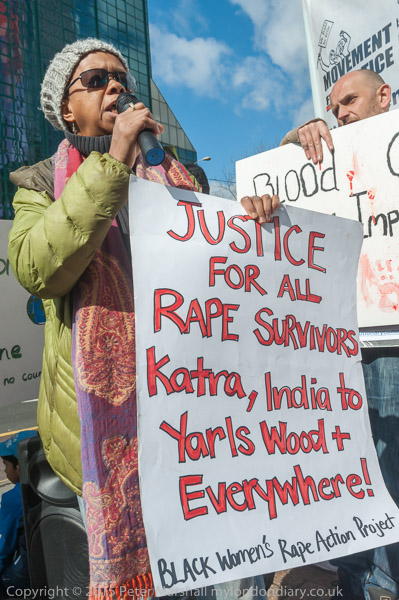 MOVEMENT
JUSTICE
BLOOD
JUSTICE
FOR ALL
RAPE SURVIVORS
Katra, India to
Yarls Wood +
Everywhere!
BLACK Women's Rape Action Project
no
Copyright © Marshall mylondondiary.co.uk